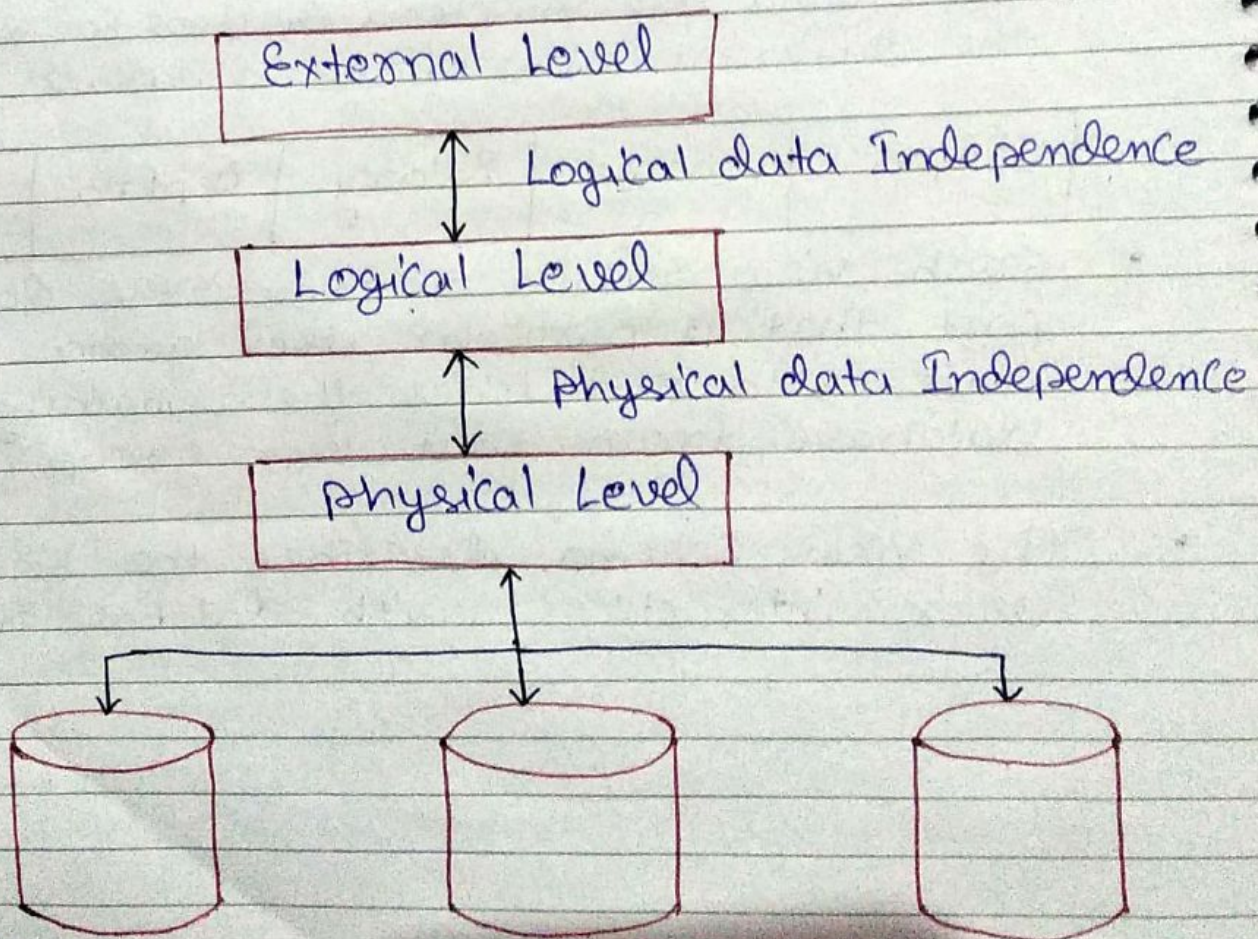 External Level
Logical data Independence
Logical Level
physical data Independence
physical Level